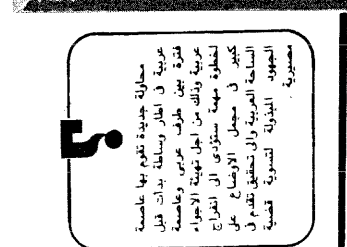 محاولة جديدة تقوم بها عاصمة
عربية في اطار وساطة بدأت قبل
فترة بين طرف عربي وعاصمة
عربية وذلك من اجل تهيئة الاجواء
لخطوة مهمة ستؤدي الى انفراج
كبير في مجمل الاوضاع على
الساحة العربية والى تحقيق تقدم في
الجهود المبذولة لتسوية قضية
مصيرية .